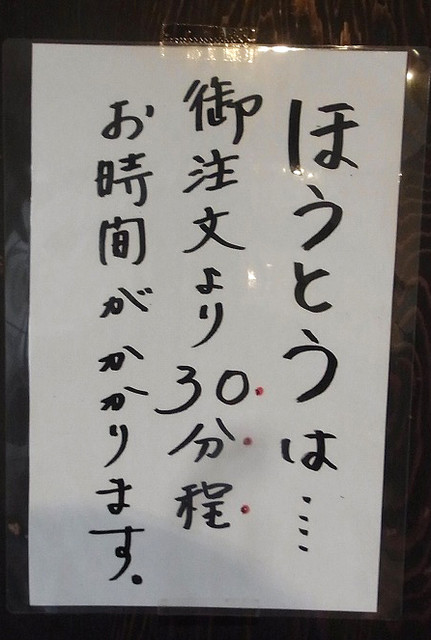 ほうとうは…
御注文より30分程
お時間がかかります。